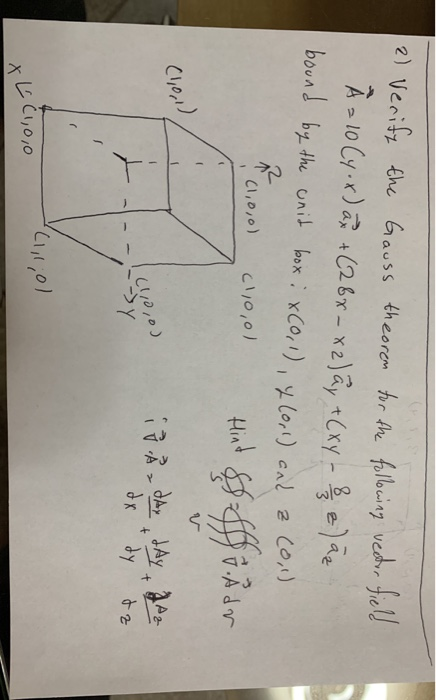 2) Verify the Gauss theorem for the following vector field
A⃗ = 10(y-x) a⃗x + (28x - xz) a⃗y + (xy - 8/3 z) a⃗z
bound by the unit box: x(0,1), y(0,1) and z(0,1)
Z
(1,0,0)
(1,0,0)
(1,0,1)
(1,0,0)
→Y
X
(1,0,0
(1,1,0)
Hint ∯ = ∭ ∇⃗·A⃗ dv
S
V
i ∇⃗·A⃗ = dAx/dx + dAy/dy + dAz/dz